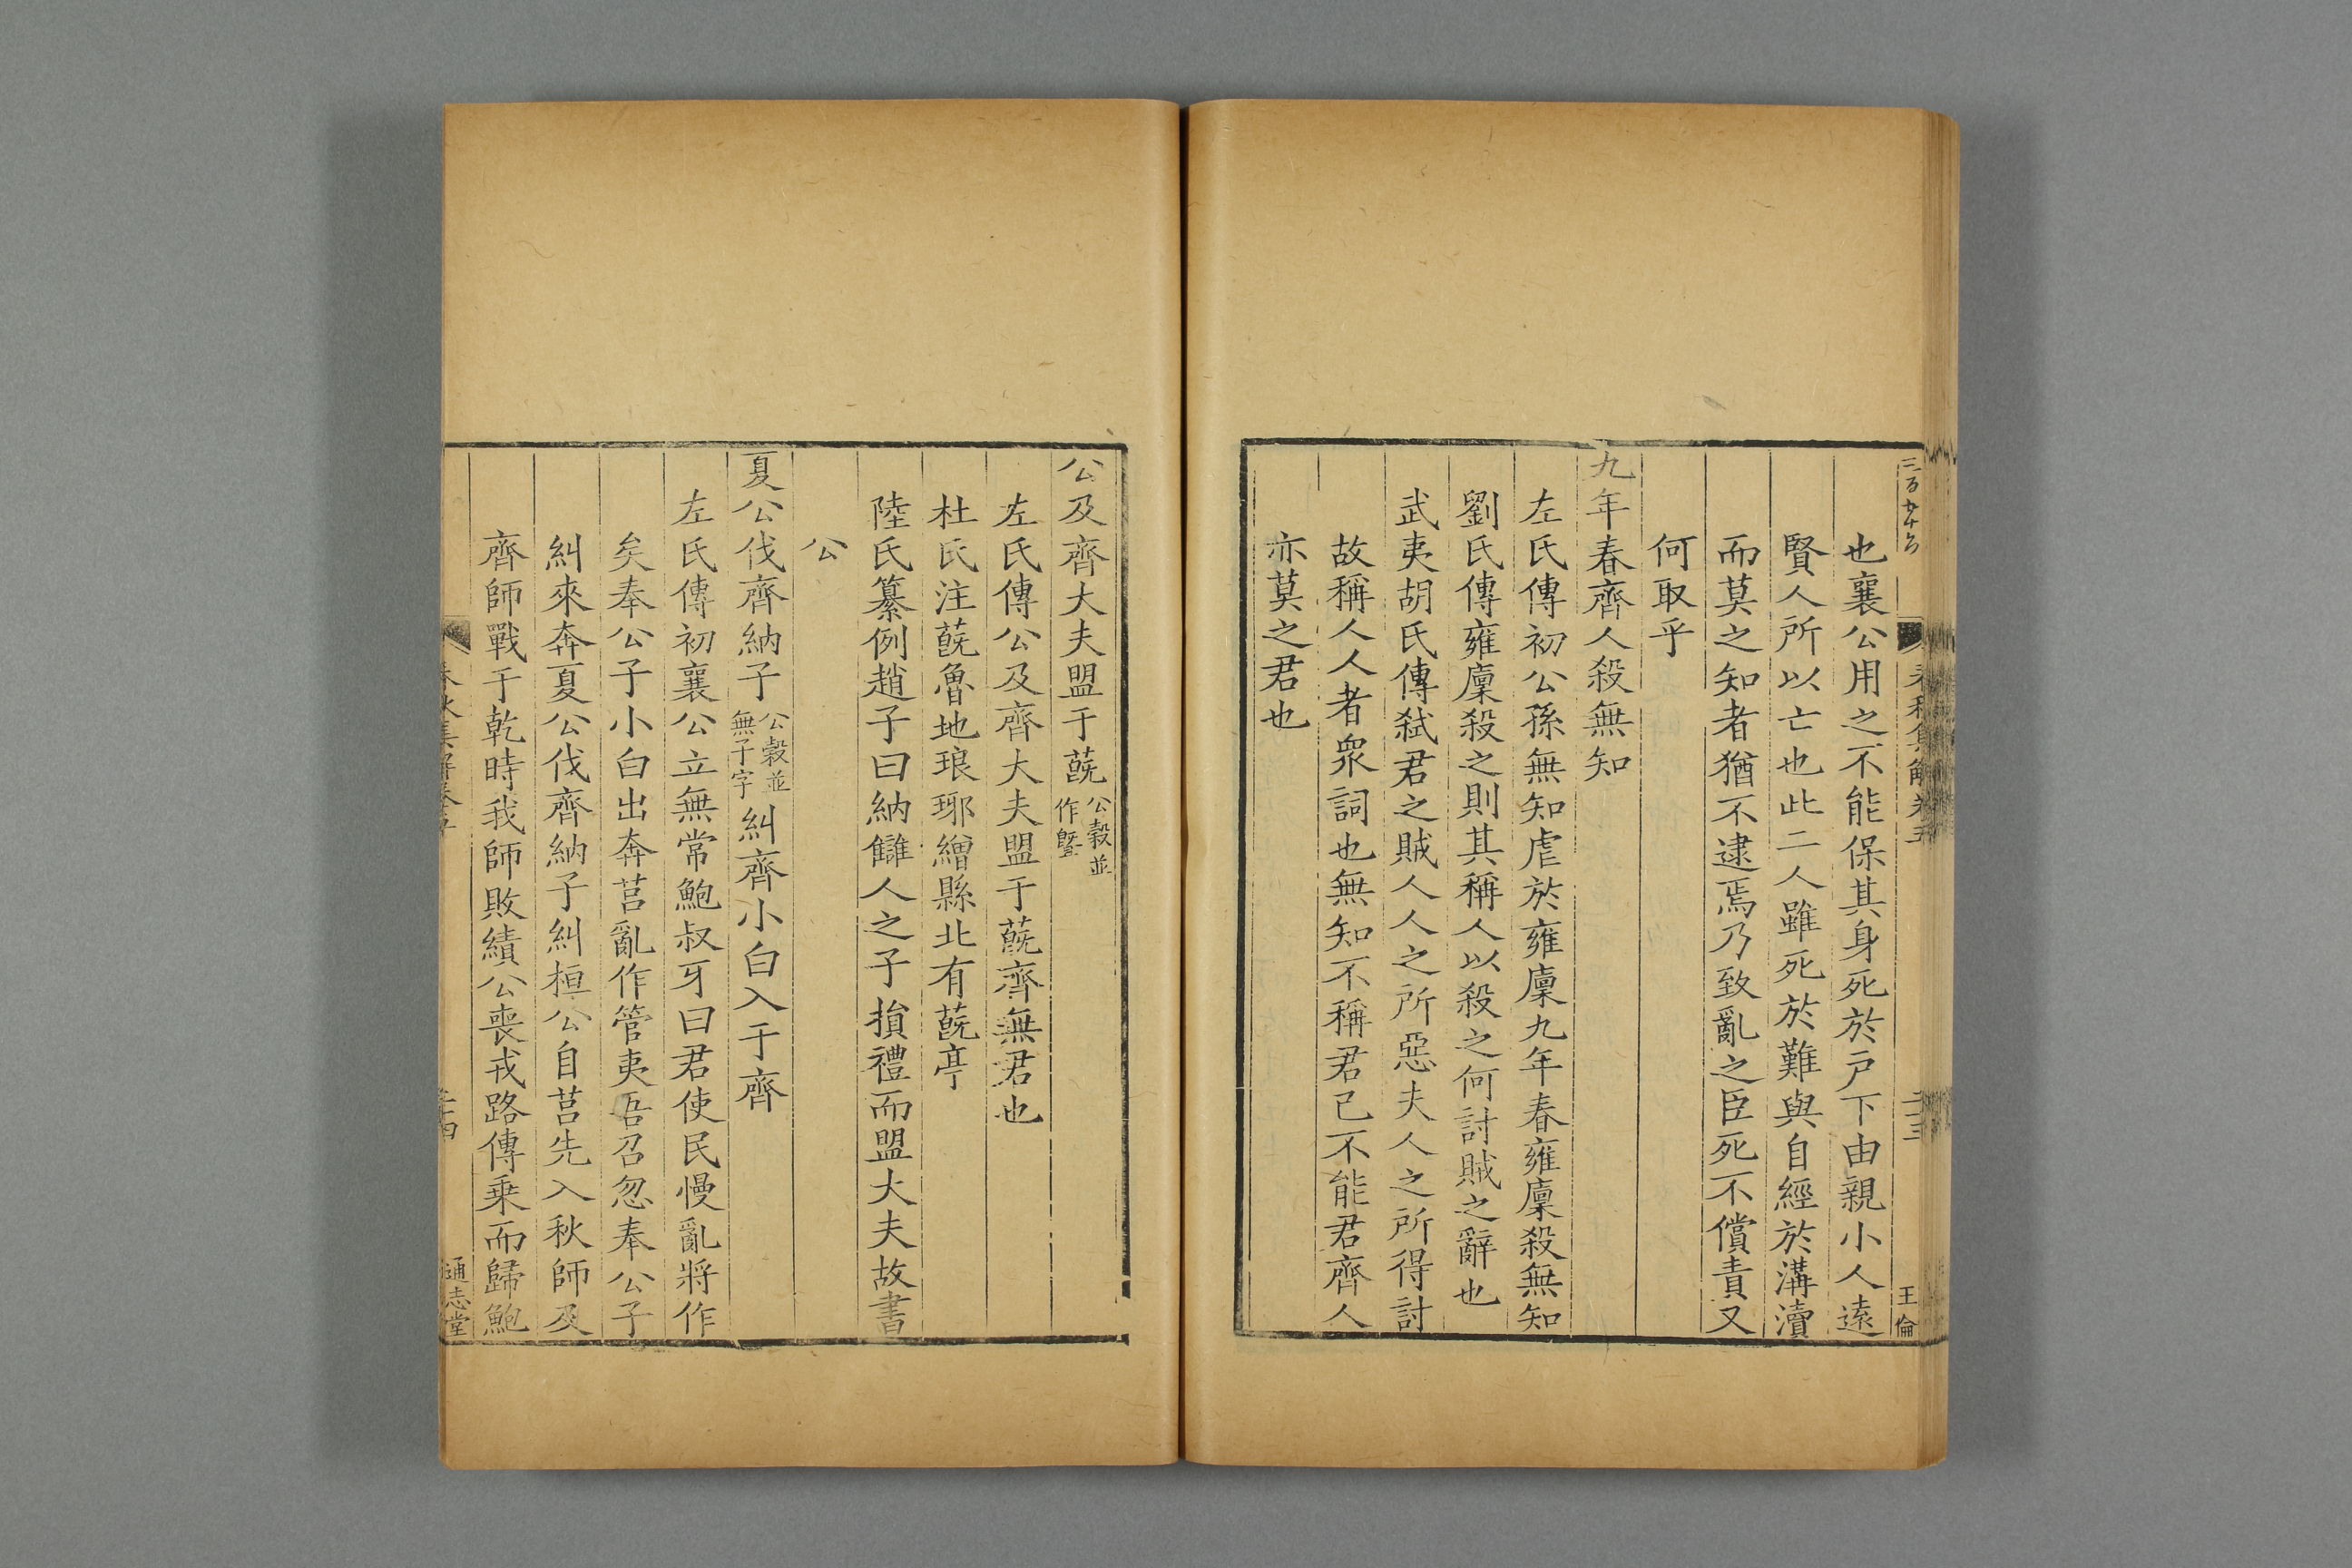 也襄公用之不能保其身死於戸下由親小人遠
賢人所以亡也此二人雖死於難與自經於溝瀆
而莫之知者猶不逮焉乃致亂之臣死不償責又
何取乎
九年春齊人殺無知
左氏傳初公孫無知虐於雍廩九年春雍廩殺無知
劉氏傳雍廩殺之則其稱人以殺之何討賊之辭也
武夷胡氏傳弑君之賊人人之所惡夫人之所得討
故稱人人者衆詞也無知不稱君已不能君齊人
亦莫之君也
公及齊大夫盟于蔇公穀並作暨
左氏傳公及齊大夫盟于蔇齊無君也
杜氏注蔇魯地琅琊繒縣北有蔇亭
陸氏纂例趙子曰納讎人之子損禮而盟大夫故書
公
夏公伐齊納子公穀並無子字糾齊小白入于齊
左氏傳初襄公立無常鮑叔牙曰君使民慢亂將作
矣奉公子小白出奔莒亂作管夷吾召忽奉公子
糾來奔夏公伐齊納子糾桓公自莒先入秋師及
齊師戰于乾時我師敗績公喪戎路傳乗而歸鮑
春秋集解卷五
二十四
通志堂
王倫